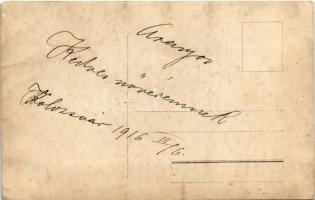 Aranyos
Kedves nővéremnek
Kolozsvár 1916 III/6.